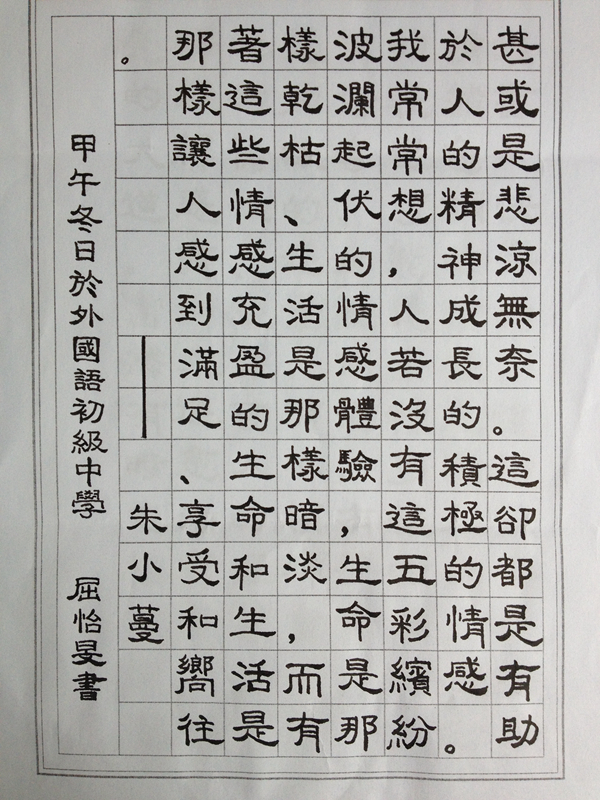 甚或是悲涼無奈。這卻都是有助
於人的精神成長的積極的情感。
我常常想，人若沒有這五彩繽紛
波瀾起伏的情感體驗，生命是那
樣乾枯、生活是那樣暗淡，而有
著這些情感充盈的生命和生活是
那樣讓人感到滿足、享受和嚮往
。——朱小蔓
甲午冬日於外國語初級中學 屈怡旻書